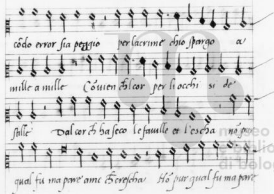 error sia peggio per lacrime chio spargo a
mille a mille Covien chl cor per li occhi si de
stille Dal cor ch ha seco le faville et l'escha
qual fu ma pare Ho pur qual fu ma pare
museo